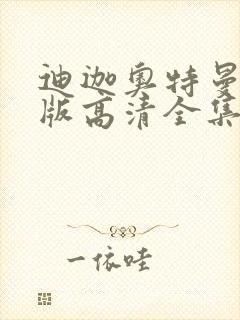 迪迦奥特曼
版高清全集
一依哇